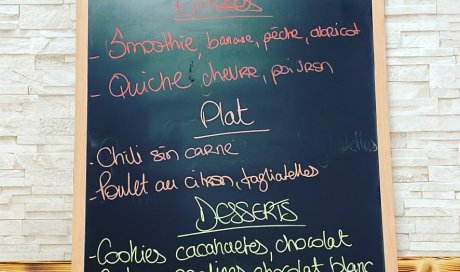 Entrées
- Smoothie, banane, pêche, abricot
- Quiche chèvre, poivron
Plat
- Chili sin carne
- Poulet au citron, tagliatelles
DESSERTS
- Cookies cacahuetes, chocolat
pralines chocolat blanc